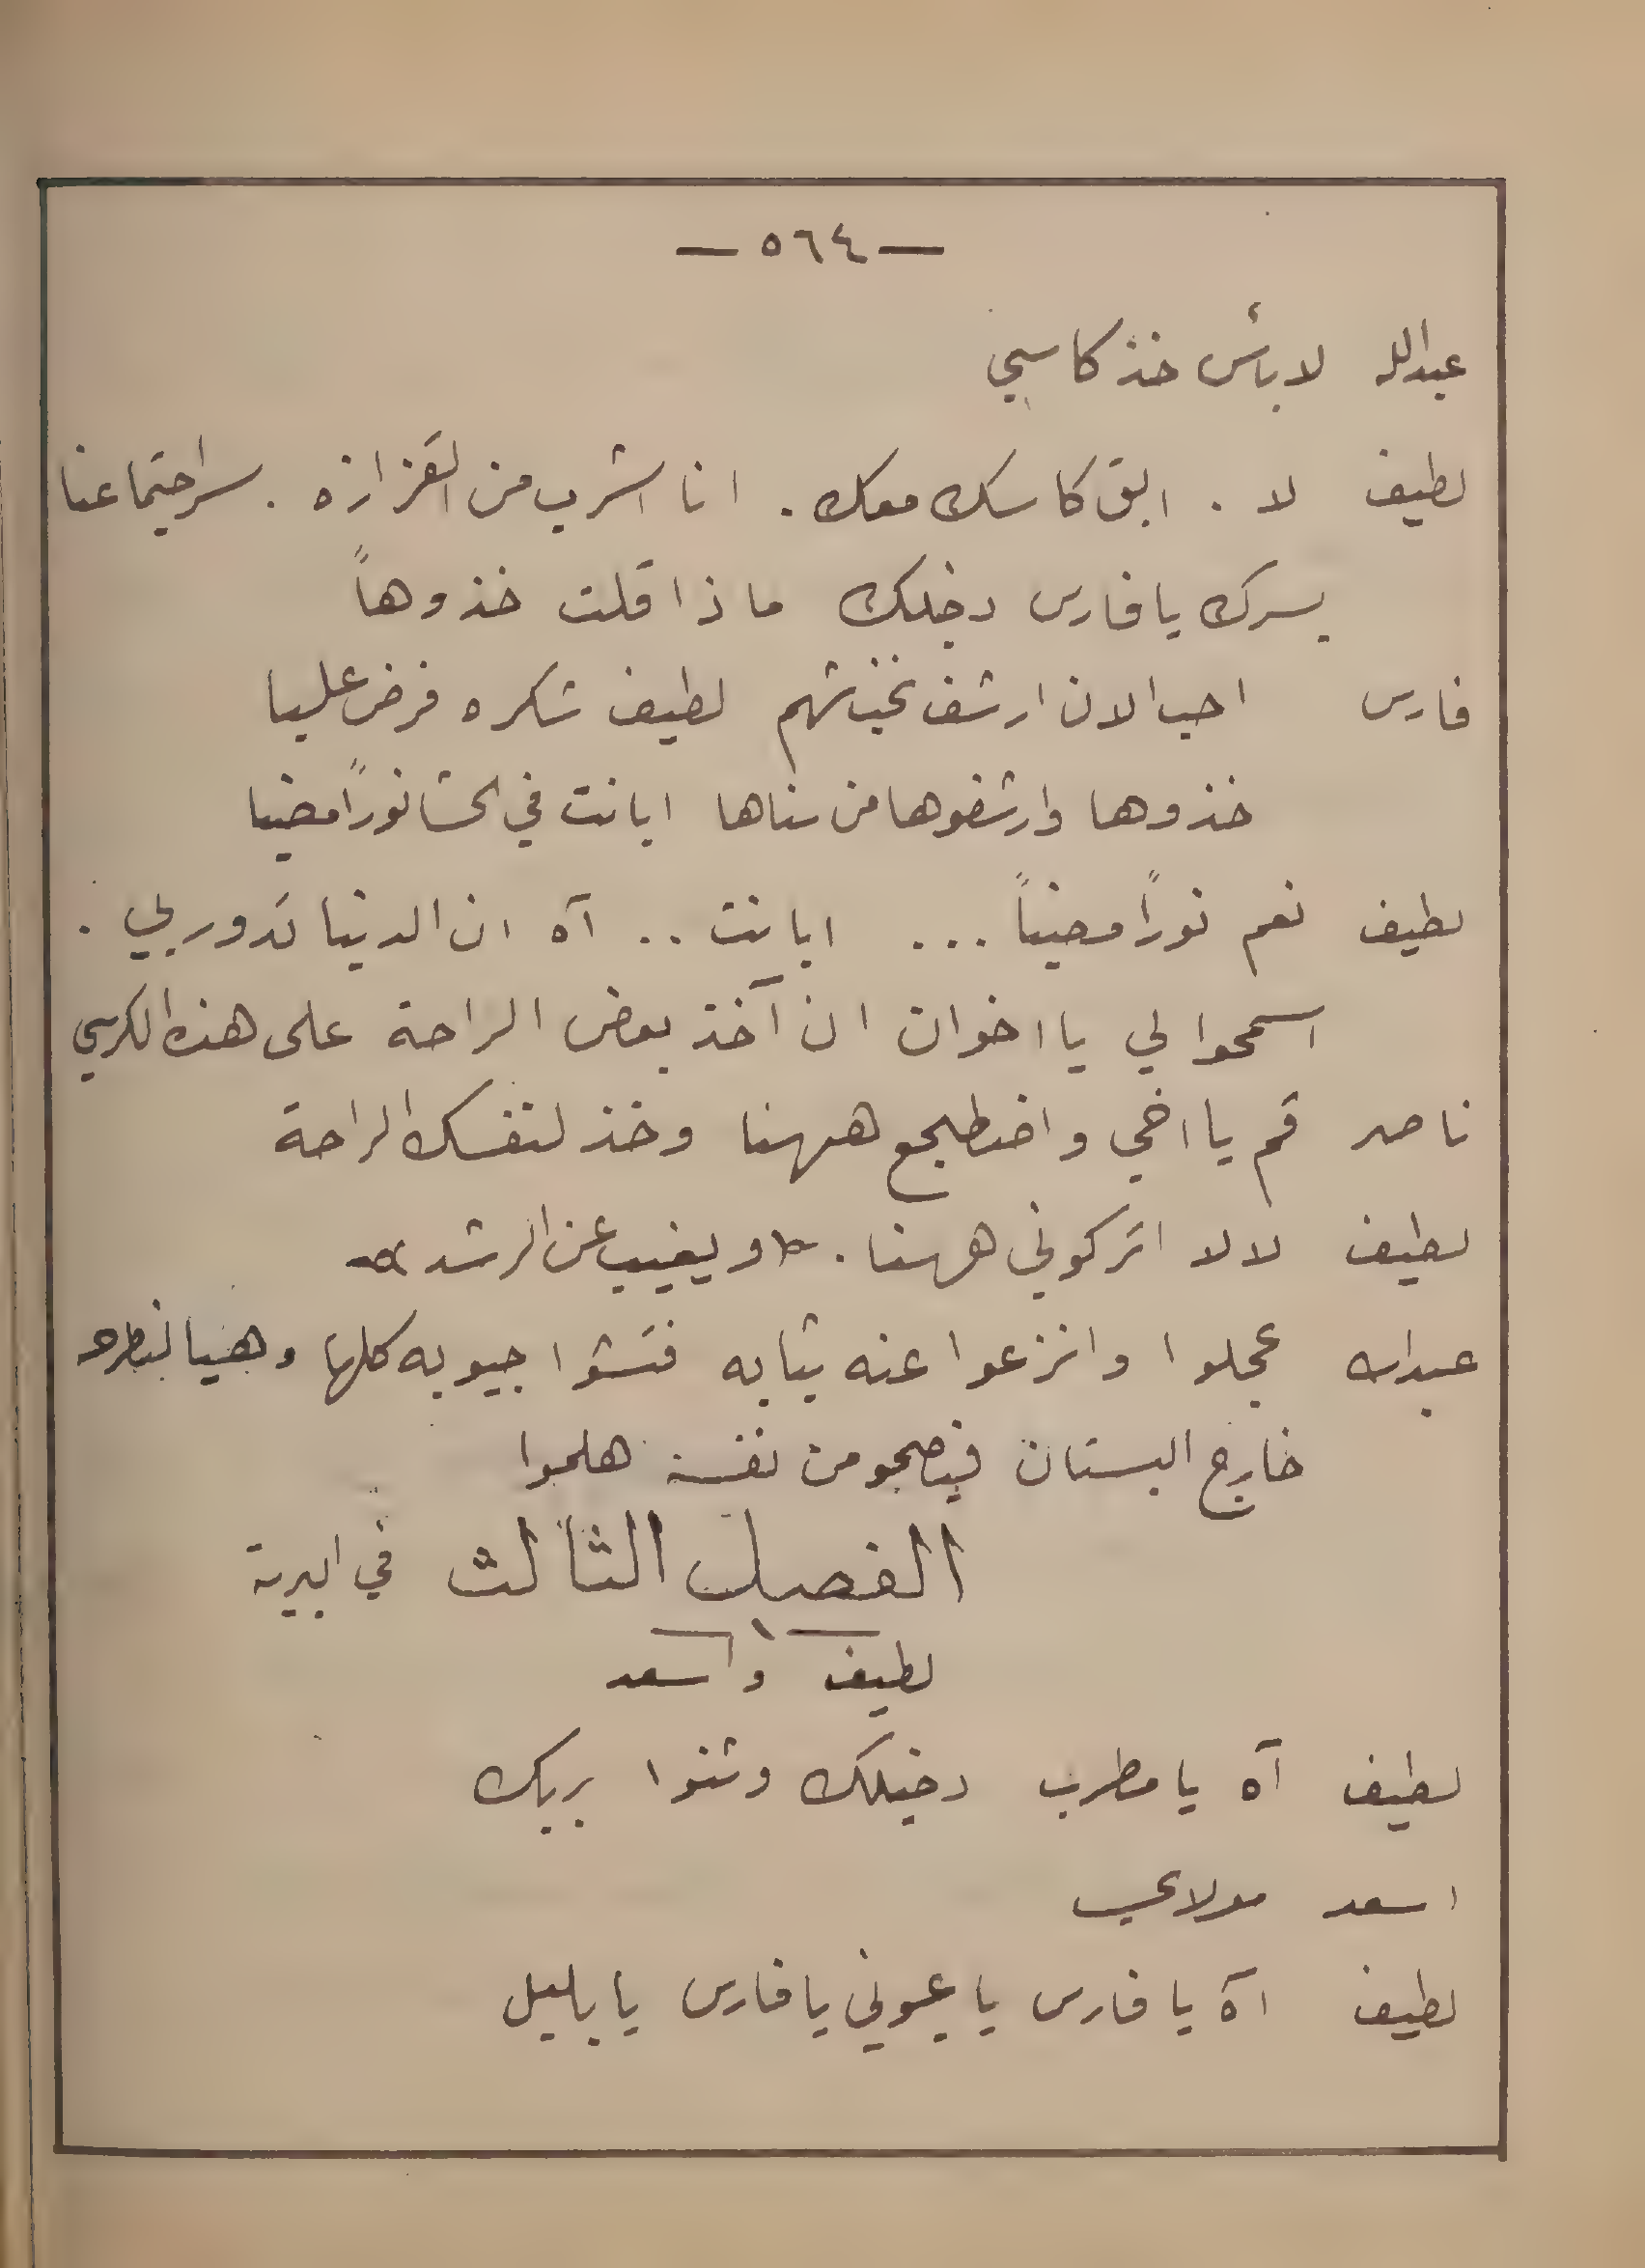 — ٥٦٤ —
عبدالله لا بأس خذ كاسي
لطيف لا . ابق كاسك معك . انا اشرب من القزازه . سر اجتماعنا
بسرك يا فارس دخلك ماذا قلت خذوهاً
فارس احب الان ارشف نخبتهم لطيف شكره فرض عليا
خذوها وارشفوها من سناها ابانت في الحشا نوراً مضيا
لطيف نعم نوراً مضيئاً ... ابانت .. آه ان الدنيا تدور بي .
اسمحوا لي يا اخوان ان آخذ بعض الراحة على هذه الكرسي
ناصر قم يا اخي واضطجع ههنا وخذ لنفسك الراحة
لطيف لا لا اتركوني ههنا . ويغيب عن الرشد
عبدالله عجلوا وانزعوا عنه ثيابه فتشوا جيوبه كلها وهيا لنطرحه
خارج البستان فيصحو من نفسه هلموا
الفصل الثالث في البرية
١
لطيف واسعد
لطيف آه يا مطرب دخيلك وشنوا بربك
اسعد مولاي
لطيف آه يا فارس يا عيوني يا فارس يا بلبل